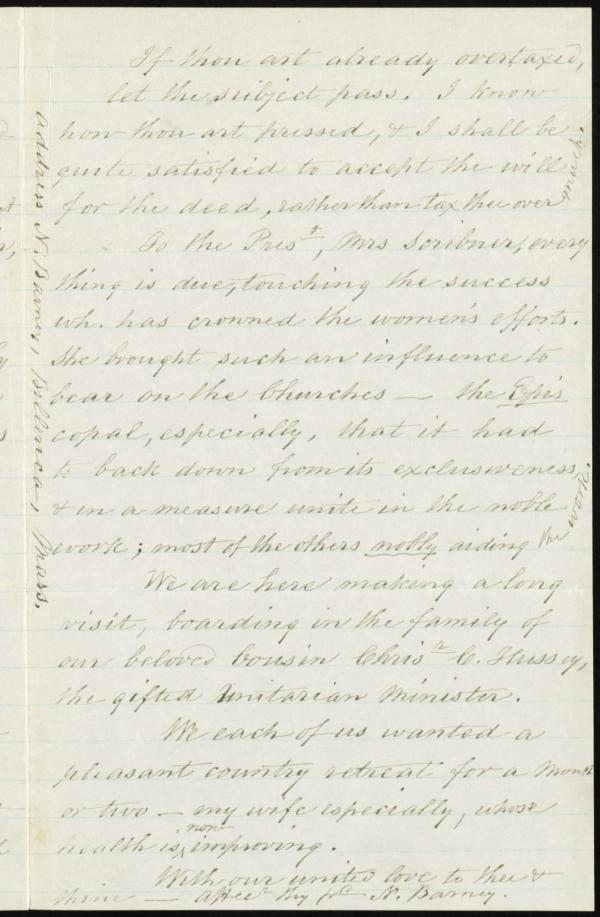 If thou art already overtaxed,
let the subject pass. I know
how thou art pressed, & I shall be
quite satisfied to accept the will
for the deed, rather than tax thee over
much.
To the Prest, Mrs Scribner, every
thing is due, touching the success
wh. has crowned the women's efforts.
She brought such an influence to
bear on the Churches — the Epis
copal, especially, that it had
to back down from its exclusiveness,
& in a measure unite in the noble
work; most of the others nobly aiding the
work.
We are here making a long
visit, boarding in the family of
our beloved Cousin Chrisr C. Hussey,
the gifted Unitarian Minister.
We each of us wanted a
pleasant country retreat for a month
or two — my wife especially, whose
health is now improving.
With our united love to thee &
thine — affecr thy frd N. Barney.
Address N. Barney, Billerica, Mass.